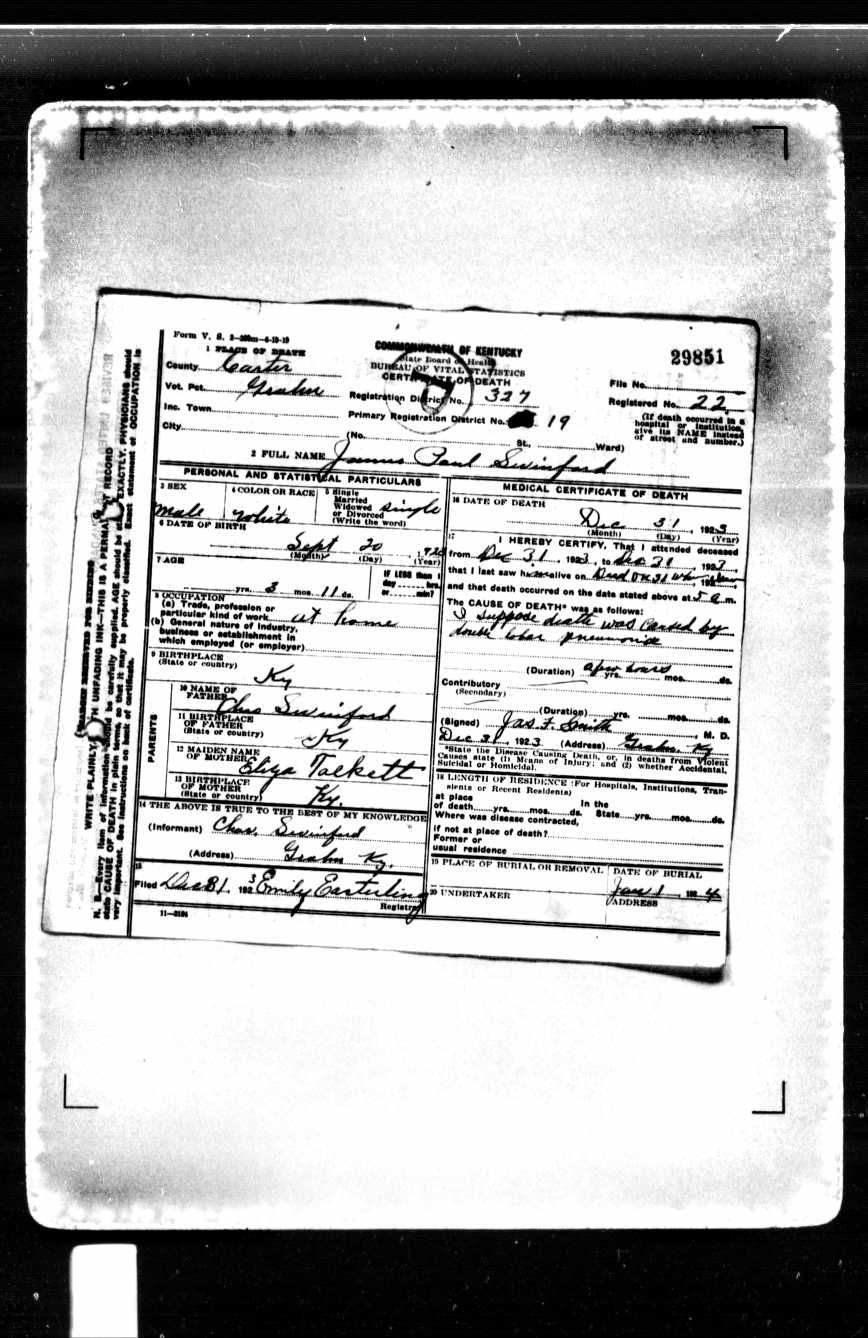 Form V. S. 2—200m—6-19-19
1 PLACE OF DEATH
County Carter
Vot. Pct. Grahn
Inc. Town
City
COMMONWEALTH OF KENTUCKY
State Board of Health
BUREAU OF VITAL STATISTICS
CERTIFICATE OF DEATH
Registration District No. 327
Primary Registration District No. 19
(No. St., Ward)
29851
File No.
Registered No. 22
(If death occurred in a
hospital or institution,
give its NAME instead
of street and number.)
2 FULL NAME James Paul Swinford
PERSONAL AND STATISTICAL PARTICULARS
3 SEX
Male
4 COLOR OR RACE
White
5 Single
Married
Widowed
or Divorced
(Write the word)
single
6 DATE OF BIRTH
Sept 20, 192
(Month) (Day) (Year)
7 AGE
yrs. 3 mos. 11 ds.
IF LESS than 1
day hrs.
or min?
8 OCCUPATION
(a) Trade, profession or
particular kind of work at home
(b) General nature of Industry,
business or establishment in
which employed (or employer)
9 BIRTHPLACE
(State or country)
Ky
PARENTS
10 NAME OF
FATHER Chas Swinford
11 BIRTHPLACE
OF FATHER
(State or country) Ky
12 MAIDEN NAME
OF MOTHER Eliza Tackett
13 BIRTHPLACE
OF MOTHER
(State or country) Ky.
14 THE ABOVE IS TRUE TO THE BEST OF MY KNOWLEDGE
(Informant) Chas. Swinford
(Address) Grahn Ky.
15
Filed Dec 31, 1923 Emily Easterling
Registrar
11—3184
MEDICAL CERTIFICATE OF DEATH
16 DATE OF DEATH
Dec 31, 1923
(Month) (Day) (Year)
17
I HEREBY CERTIFY, That I attended deceased
from Dec 31, 1923, to Dec 31, 1923,
that I last saw h alive on Dead Dec 31 when, 192
and that death occurred on the date stated above at 5 a m.
The CAUSE OF DEATH* was as follows:
I suppose death was caused by
double lobar pneumonia
(Duration) a few hours yrs. mos. ds.
Contributory
(Secondary)
(Duration) yrs. mos. ds.
(Signed) Jas. F. Smith, M. D.
Dec 31, 1923 (Address) Grahn, Ky
*State the Disease Causing Death, or, in deaths from Violent
Causes state (1) Means of Injury; and (2) whether Accidental,
Suicidal or Homicidal.
18 LENGTH OF RESIDENCE (For Hospitals, Institutions, Tran-
sients or Recent Residents)
at place In the
of death yrs. mos. ds. State yrs. mos. ds.
Where was disease contracted,
If not at place of death?
Former or
usual residence
19 PLACE OF BURIAL OR REMOVAL
DATE OF BURIAL
Jan 1, 1924
20 UNDERTAKER
ADDRESS
MARGIN RESERVED FOR BINDING
WRITE PLAINLY, WITH UNFADING INK—THIS IS A PERMANENT RECORD
N. B.—Every item of information should be carefully supplied. AGE should be stated EXACTLY. PHYSICIANS should
state CAUSE OF DEATH in plain terms, so that it may be properly classified. Exact statement of OCCUPATION is
very important. See instructions on back of certificate.